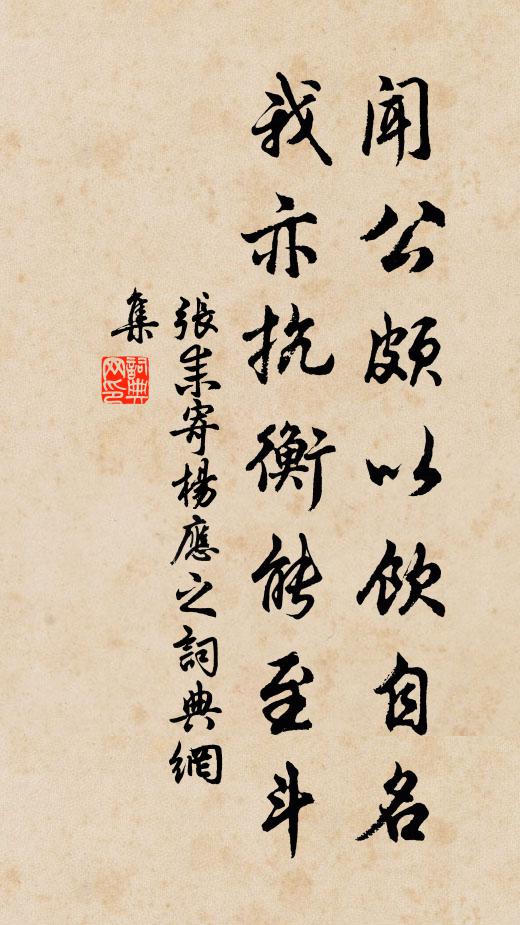 聞公頗以飲自名
我亦抗衡能至斗
張耒寄楊應之詞典網
集
詞典
网印